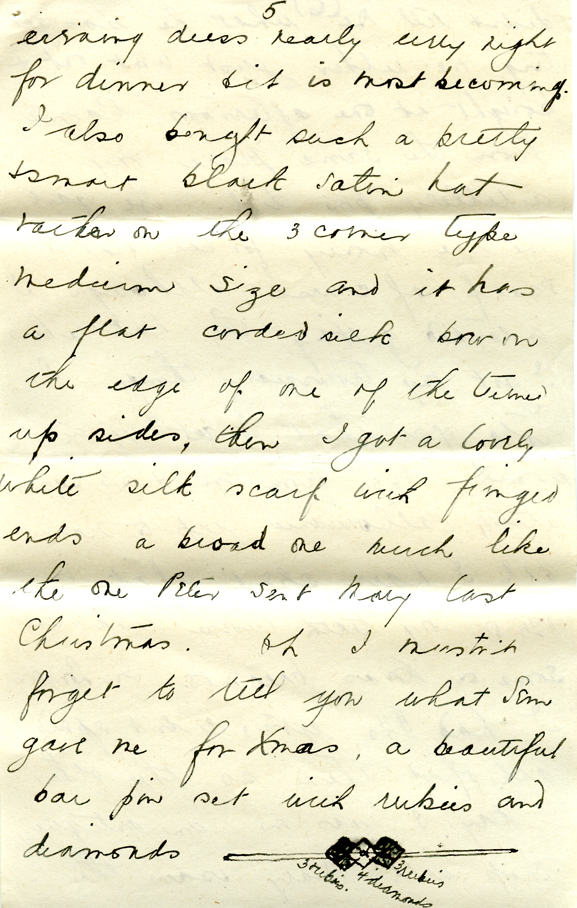 5
evening dress nearly every night
for dinner & it is most becoming.
I also bought such a pretty
smart black satin hat
rather on the 3 corner type
medium size and it has
a flat corded silk bow on
the edge of one of the turned
up sides, then I got a lovely
white silk scarf with fringed
ends a broad one much like
the one Peter sent Mary last
Christmas. Oh I mustn't
forget to tell you what Sam
gave me for Xmas, a beautiful
bar pin set with rubies and
diamonds
3 rubies. 4 diamonds 3 rubies